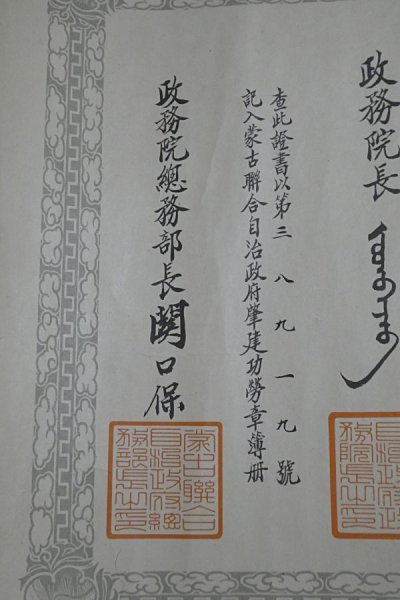 政務院長
查此證書以第三八九一九號
記入蒙古聯合自治政府肇建功勞章簿册
政務院總務部長関口保
自治政府政
務院長之印
蒙古聯合
自治政府總
務部長之印